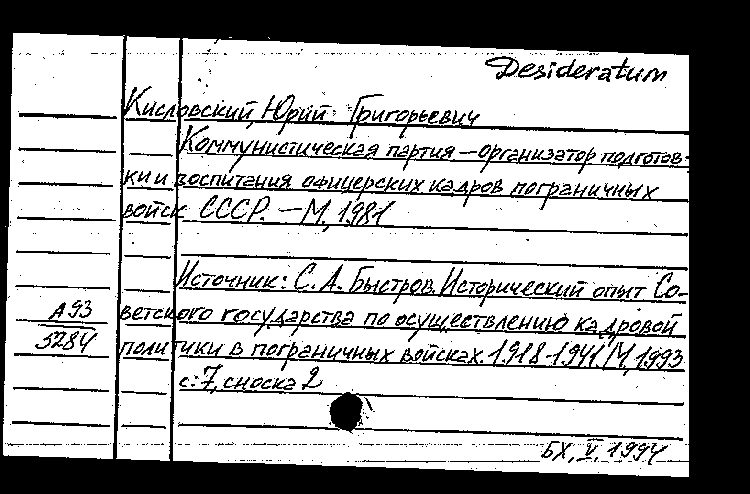 Desideratum
Кисловский, Юрий Григорьевич
Коммунистическая партия — организатор подготов-
ки и воспитания офицерских кадров пограничных
войск СССР. — М., 1981
Источник: С. А. Быстров. Исторический опыт Со-
ветского государства по осуществлению кадровой
политики в пограничных войсках. 1918-1941. М., 1993
с. 7, сноска 2
А 93
5284
БХ, V. 1994